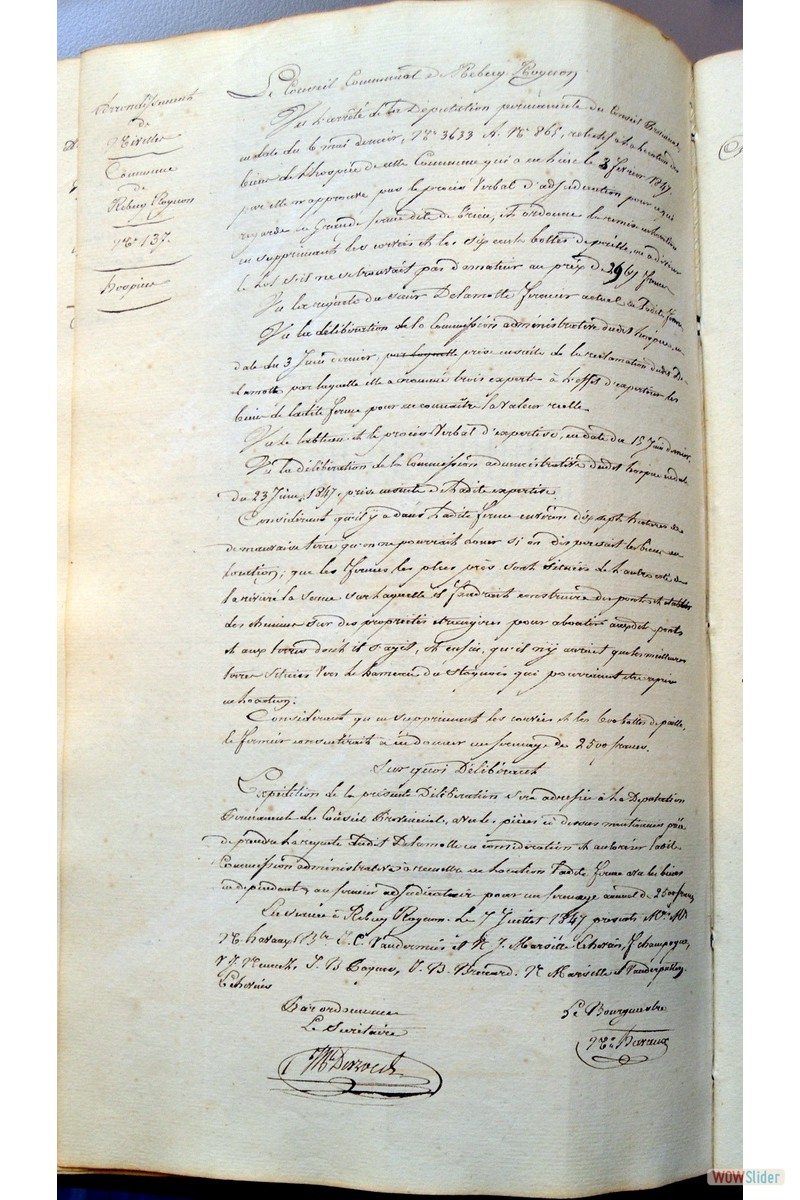 Arrondissement
de
Nivelles
Commune
de
Rebecq Rognon
N° 137.
hospice
Le Conseil Communal de Rebecq Rognon
Vu l'arrêté de la Députation permanente du Conseil Provincial,
en date du 6 mai dernier, N° 3633 A. N° 865, relatif à la location des
biens de l'hospice de cette Commune qui a eu lieu le 3 février 1847.
par elle n'approuve pas le procès verbal d'adjudication pour ce qui
regarde la Grande ferme dit de Trieu, et ordonne la remise en location
en supprimant les corvées et les six cents bottes de paille, ou à diviser
le lot s'il ne se trouvait pas d'amateur au prix de 2961 francs
Vu la requête du sieur Delamotte fermier actuel de ladite ferme
Vu la délibération de la Commission administrative dudit hospice, en
date du 3 Juin dernier, par laquelle prise ensuite de la réclamation dudit De-
lamotte par laquelle elle a nommé trois experts à l'effet d'expertiser les
biens de ladite ferme pour en connaître la valeur réelle.
Vu le tableau et le procès verbal d'expertise, en date du 15 Juin dernier.
Vu la délibération de la Commission administrative dudit hospice en date
du 23 Juin 1847, prise ensuite de ladite expertise.
Considérant qu'il y a dans ladite ferme environ dix sept hectares de
de mauvaise terre qu'on ne pourrait louer si on dispersait les biens en
location; que les fermes les plus près sont situées de l'autre côté de
la rivière la Senne sur laquelle il faudrait construire des ponts et établir
des chemins sur des propriétés étrangères pour aboutir auxdits ponts
et aux terres dont il s'agit, et enfin, qu'il n'y aurait que les meilleures
terres situées vers le hameau du Stoquois qui pourraient être reprises
en location.
Considérant qu'en supprimant les corvées et les 600 bottes de paille,
le fermier consentirait à en donner un fermage de 2500 francs.
Sur quoi Délibérant
Expédition de la présente Délibération sera adressée à la Députation
Permanente du Conseil Provincial, avec les pièces ci dessus mentionnées priée
de prendre la requête dudit Delamotte en considération et autoriser ladite
Commission administrative à remettre en location ladite ferme avec les biens
en dépendant, au fermier adjudicataire pour un fermage annuel de 2500 francs
En séance à Rebecq Rognon le 7 Juillet 1847 présents MM.
C. Vandermies et N. J. Marsille Echevins, F. Champagne,
N. Marsille et Vanderpallen
Echevins
Par ordonnance
Le Secrétaire
Le Bourguemestre
WOWSlider